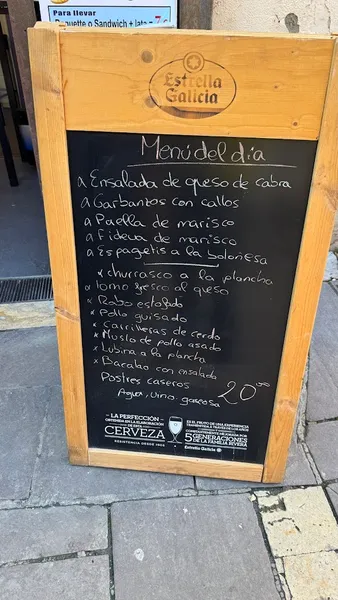 Para llevar
Baguette o Sandwich + lata = 7€
Estrella
Galicia
Menú del día
Ensalada de queso de cabra
Garbanzos con callos
Paella de marisco
Fideua de marisco
Espagetis a la boloñesa
churrasco a la plancha
lomo fresco al queso
Rabo estofado
Pollo guisado
Carrilleras de cerdo
Muslo de pollo asado
Lubina a la plancha
Bacalao con ensalada
Postres caseros 20
Agua, vino, gaseosa
LA PERFECCIÓN
CERVEZA
5 GENERACIONES
DE LA FAMILIA RIVERA
Estrella Galicia